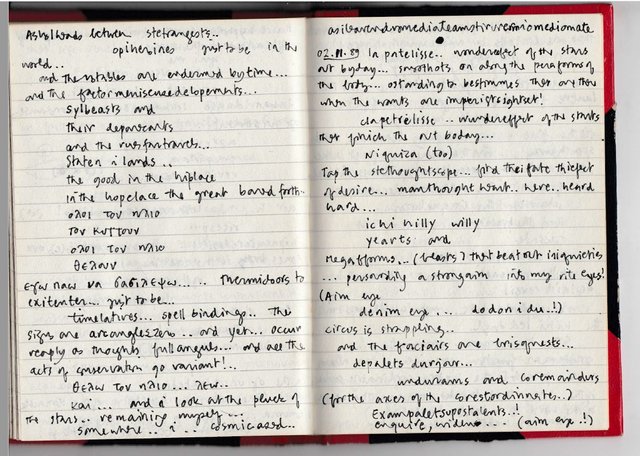 between
opihervines just to be in the
world..
and the notables are endermed by time...
and the factormeniscusedelopements...
sylbeasts and
their departants
and the
Staten i lands..
the good in the hiplace
in the hopelace the great boned forth..
ολοι τον ηλιο
του κυττουν
ολοι τον ηλιο
θελουν
εγω παω να βασιλεψω... .. Thermidoors to
exitenter... just to be...
timelatures... spell bindings.. The
signs are arcangleszero.. and yet... occur
reaply as thoughts fullangues... and all the
acts of conservation go variant!..
θελω τον ηλιο... λεω..
και... and i look at the pluck of
the stars.. remaining myself...
somewhere.. i.. cosmicased..
02.11.89 la patelisse.. wondereffect of the stars
out by day... smoothots on along the paraforms of
the body... ostanding to bestimmes they are there
when the wants are imperistraightset!
clapetrolisse.. wundereffect of the starts
they finich the out boday...
niquiza (too)
Tap the stethoughtscope... find theifate thiefect
of desire... manthought want.. here.. heard
hard...
ichi nilly willy
yearts and
megafforms.. (beasts) that beat out iniquieties
... persuanding a strongaim into my rite eyes!
(Aim eye
denim eye... do don i du..!)
circus is strappling..
and the fraciairs are brisquests...
depalets durjour..
undurhams and coremandurs
(for the axes of the corestordinnates..)
Exampaletsupostalents..!
enquire, widens... (aim eye.!)